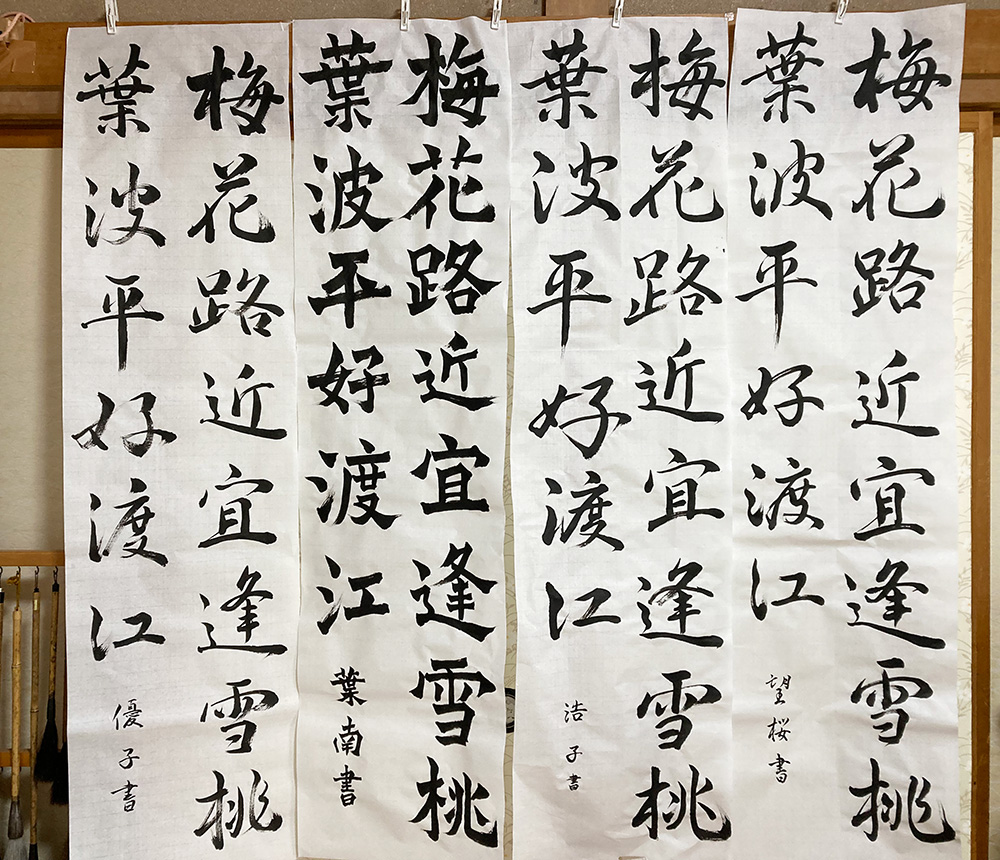 梅花路近宜逢雪桃
葉波平好渡江
望桜書
梅花路近宜逢雪桃
葉波平好渡江
浩子書
梅花路近宜逢雪桃
葉波平好渡江
葉南書
梅花路近宜逢雪桃
葉波平好渡江
優子書